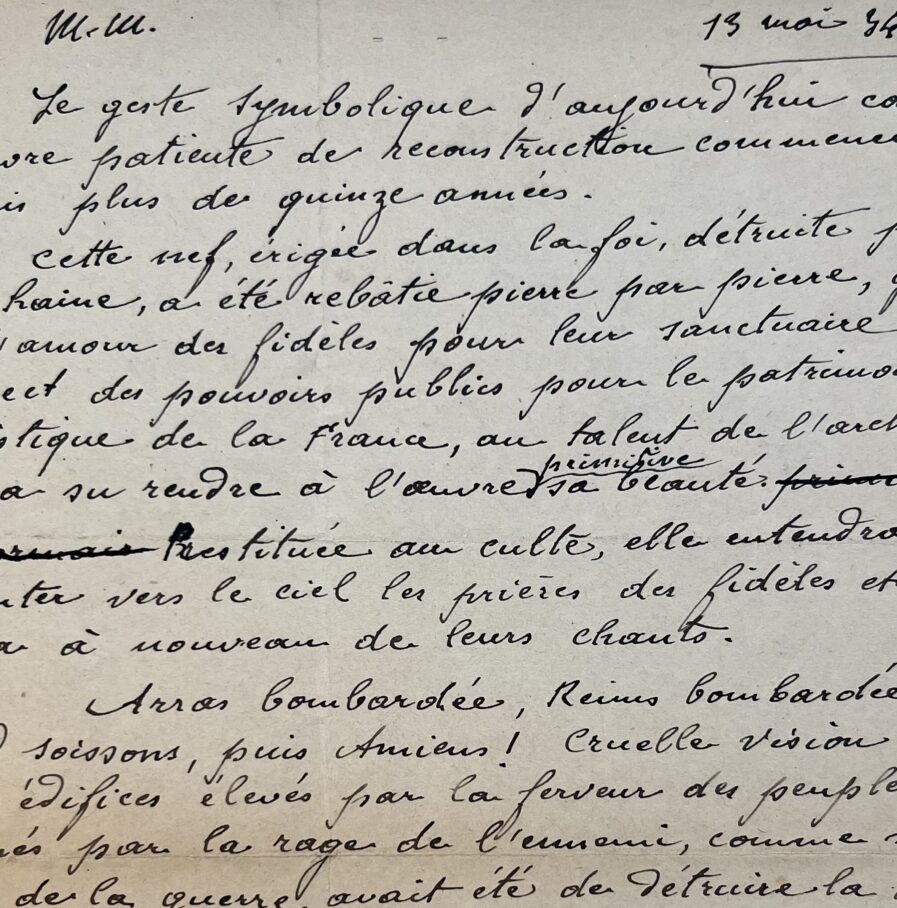 M.M. 13 mai 34
Le geste symbolique d'aujourd'hui co
vre patiente de reconstruction commenc
is plus de quinze années.
Cette nef, érigée dans la foi, détruite p
haine, a été rebâtie pierre par pierre, g
'amour des fidèles pour leur sanctuaire
ect des pouvoirs publics pour le patrimo
stique de la France, au talent de l'arch
primitive
a su rendre à l'œuvre sa beauté.
Restituée au culte, elle entendra
nter vers le ciel les prières des fidèles et
a à nouveau de leurs chants.
Arras bombardée, Reims bombardée
Soissons, puis Amiens ! Cruelle vision
édifices élevés par la ferveur des peuple
és par la rage de l'ennemi, comme s
de la guerre, avait été de détruire la